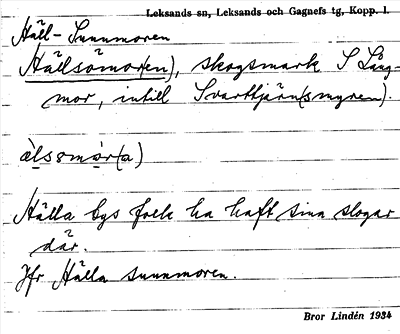 Leksands sn, Leksands och Gagnefs tg, Kopp. l.
Häll-Sunnmoren
Hällsömor(en), skogsmark S Lång-
mor, intill Svarttjärn(smyren).
älssmòr(a)
Hälla bys folk ha haft sina slogar
där.
Jfr Hälla sunnmoren.
Bror Lindén 1934